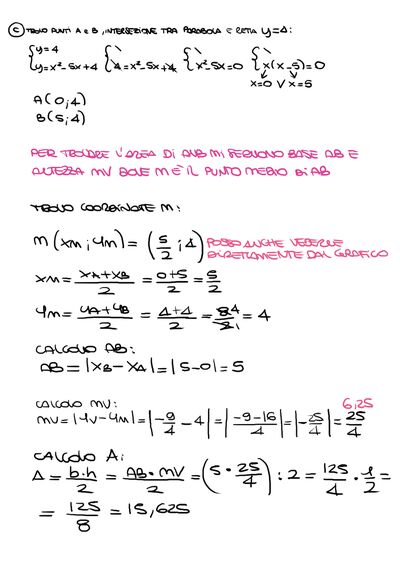 C) TROVO PUNTI A E B, INTERSEZIONE TRA PARABOLA E RETTA y=4:
{y=4 { \ { \ { \
{y=x²-5x+4 {4=x²-5x+4 {x²-5x=0 {x(x-5)=0
x=0 ∨ x=5
A(0;4)
B(5;4)
PER TROVARE L'AREA DI AVB MI SERVONO BASE AB E
ALTEZZA MV DOVE M È IL PUNTO MEDIO DI AB
TROVO COORDINATE M:
M(xM; yM) = (5/2; 4) POSSO ANCHE VEDERLE
DIRETTAMENTE DAL GRAFICO
xM = xA+xB/2 = 0+5/2 = 5/2
yM = yA+yB/2 = 4+4/2 = 8⁴/2₁ = 4
CALCOLO AB:
AB = |xB-xA| = |5-0| = 5
CALCOLO MV: 6,25
MV = |yV-yM| = |-9/4 - 4| = |-9-16/4| = |-25/4| = 25/4
CALCOLO A:
A = b·h/2 = AB·MV/2 = (5·25/4):2 = 125/4 · 1/2 =
= 125/8 = 15,625